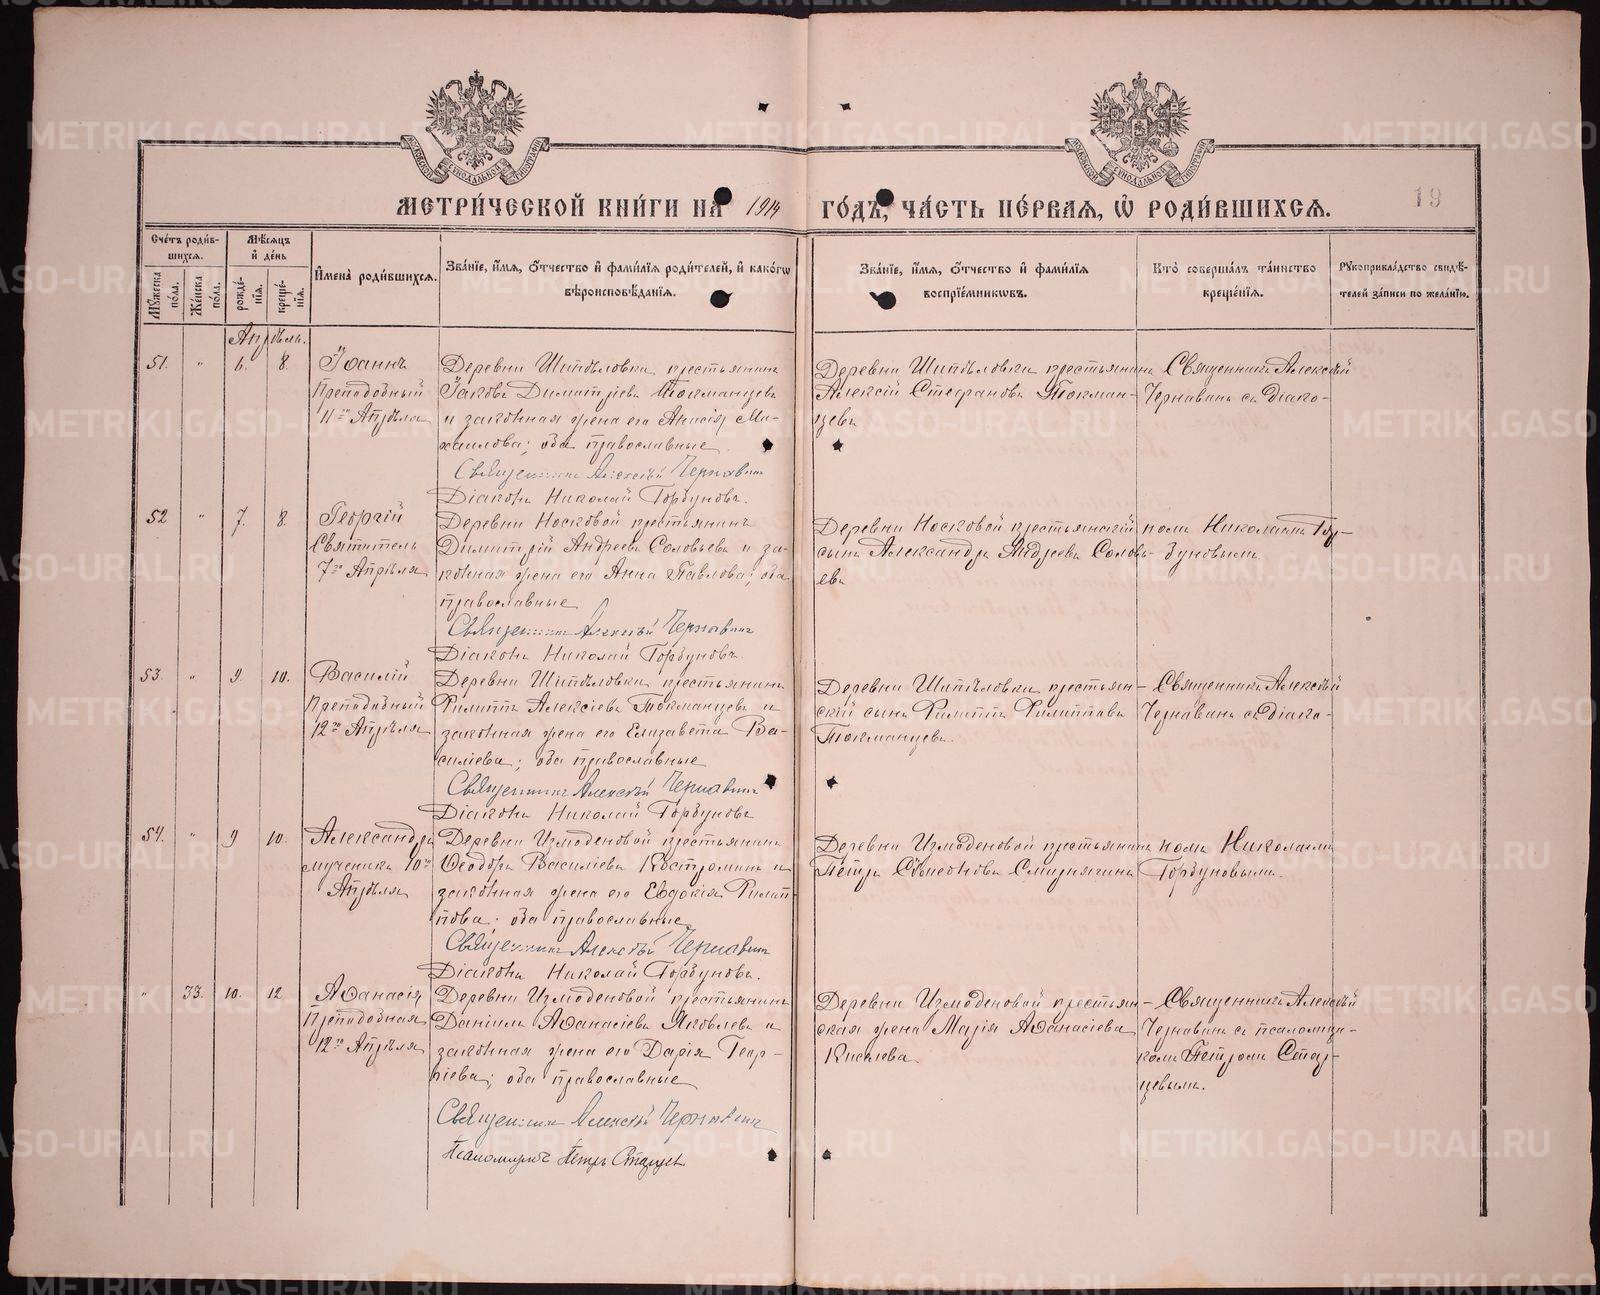 МЕТРИ́ЧЕСКОЙ КНИ́ГИ НА 1914 ГО́ДЪ, ЧА́СТЬ ПЕ́РВАЯ, Ѡ҆ РОДИ́ВШИХСЯ.
19
Сче́тъ роди́в-
шихся.
Му́жеска по́ла.
Же́нска по́ла.
Мѣ́сяцъ и҆ де́нь
рожде́-
нїя.
креще́-
нїя.
И҆мена̀ роди́вшихся.
Зва́нїе, и҆́мя, ѻ҆́тчество и҆ фамі́лїя роди́телей, и҆ како́гѡ
вѣроисповѣ́данїя.
Зва́нїе, и҆́мя, ѻ҆́тчество и҆ фамі́лїя
воспрїе́мниковъ.
Кто̀ соверша́лъ та́инство
креще́нїя.
Рꙋкоприкла́дство свидѣ́-
телей за́писи по жела́нїю.
Апрѣль.
51. " 6. 8. Іоаннъ
Преподобный
11го Апрѣля
Деревни Шипѣловки крестьянинъ
Іаковъ Димитріевъ Токманцевъ
и законная жена его Анисія Ми-
хаилова; оба православные
Священникъ Алексѣй Чернавинъ
Діаконъ Николай Горбуновъ.
Деревни Шипѣловки крестьянинъ
Алексій Стефановъ Токман-
цевъ
Священникъ Алексѣй
Чернавинъ съ діако-
52 " 7. 8. Георгій
Святитель
7го Апрѣля
Деревни Носковой крестьянинъ
Димитрій Андреевъ Соловьевъ и за-
конная жена его Анна Павлова; оба
православные
Священникъ Алексѣй Чернавинъ
Діаконъ Николай Горбуновъ.
Деревни Носковой крестьянскій
сынъ Александръ Андреевъ Соловь-
евъ
номъ Николаемъ Гор-
буновымъ
53. " 9. 10. Василій
Преподобный
12го Апрѣля
Деревни Шипѣловки крестьянинъ
Филиппъ Алексіевъ Токманцевъ и
законная жена его Елизавета Ва-
силіева; оба православные
Священникъ Алексѣй Чернавинъ
Діаконъ Николай Горбуновъ
Деревни Шипѣловки крестьян-
скій сынъ Филиппъ Филипповъ
Токманцевъ.
Священникъ Алексѣй
Чернавинъ съ діако-
54. " 9 10. Александръ
мученикъ 10го
Апрѣля
Деревни Измоденовой крестьянинъ
Ѳеодоръ Василіевъ Костроминъ и
законная жена его Евдокія Филип-
пова; оба православные
Священникъ Алексѣй Чернавинъ
Діаконъ Николай Горбуновъ.
Деревни Измоденовой крестьянинъ
Петръ Сѵмеоновъ Смирнягинъ
номъ Николаемъ
Горбуновымъ.
" 33. 10. 12. Аѳанасія
Преподобная
12го Апрѣля
Деревни Измоденовой крестьянинъ
Даніилъ Аѳанасіевъ Яковлевъ и
законная жена его Дарія Геор-
гіева; оба православные
Священникъ Алексѣй Чернавинъ
Псаломщикъ Петръ Старцевъ
Деревни Измоденовой крестьян-
ская жена Марія Аѳанасіева
Киселева
Священникъ Алексѣй
Чернавинъ съ псаломщи-
комъ Петромъ Стар-
цевымъ.
METRIKI.GASO-URAL.RU